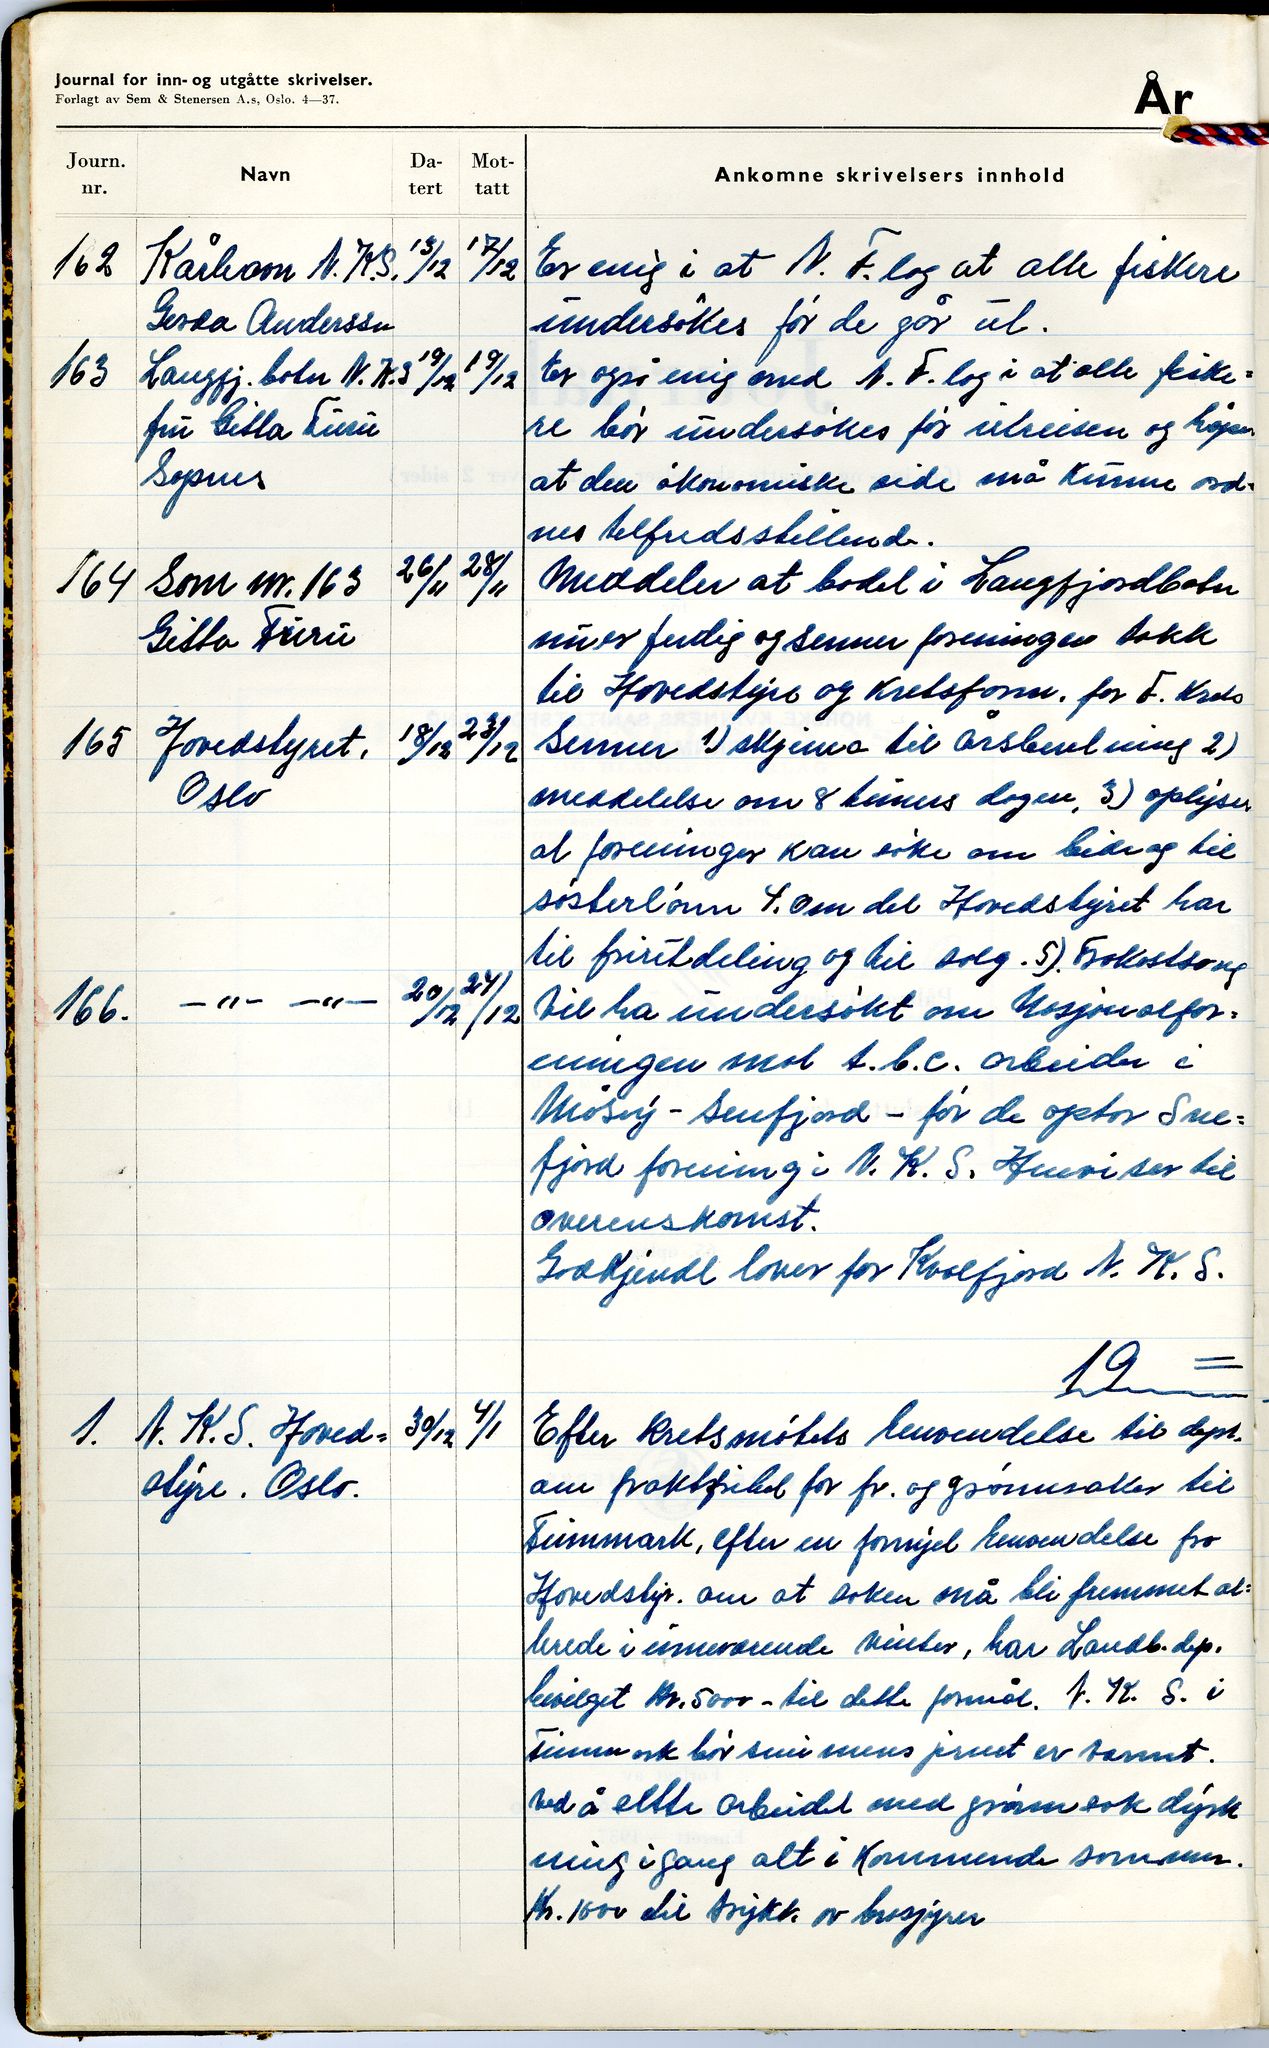 Journal for inn- og utgåtte skrivelser.
Forlagt av Sem & Stenersen A.s, Oslo. 4—37.
År
Journ. nr. Navn Da-tert Mot-tatt Ankomne skrivelsers innhold
162 Kårhavn N.K.S. 13/12 17/12 Er enig i at N. F. lag at alle fiskere
Gerda Anderssen undersökes för de går ut.
163 Langfj.botn N.K.S 19/12 19/12 Er også enig med N. F. lag i at alle fiske=
fru Gitta Furu re bör undersökes för utreisen og håper
Sopnes at den ökonomiske side må kunne ord=
nes tilfredsstillende.
164 Som nr. 163 26/11 28/11 Meddeler at badet i Langfjordbotn
Gitta Furu nu er ferdig og senner foreningen takk
til Hovedstyre og Kretsform. for F. Krets
165 Hovedstyret. 18/12 23/12 Senner 1) skjema til årsberetning 2)
Oslo meddelelse om 8 timers dagen, 3) oplyser
at foreninger kan söke om bidrag til
sösterlönn 4. Om det Hovedstyret har
til friutdeling og til salg. 5). Frokostsang
166. —"— —"— 20/12 24/12 Vil ha undersökt om Nasjonalfor=
eningen mot t.b.c. arbeider i
Måsöy - Snefjord - för de optar Sne=
fjord forening i N. K. S. Henviser til
overenskomst.
Godkjendt lover for Kvalfjord N. K. S.
19 =
1. N. K. S. Hoved= 30/12 4/1 Efter Kretsmötets henvendelse til dept.
styre. Oslo. om fraktfrihet for fr. og grönnsaker til
Finnmark, efter en fornyet henvendelse fra
Hovedstyr. om at saken må bli fremmet al=
lerede i inneværende vinter, har Landb. dep.
bevilget Kr. 5000 - til dette formål. N. K. S. i
Finnmark bör smi mens jernet er varmt.
ved å sette arbeidet med grönnsak dyrk
ning igang alt i Kommende sommer.
Kr. 1000 til trykk. av brosjyrer